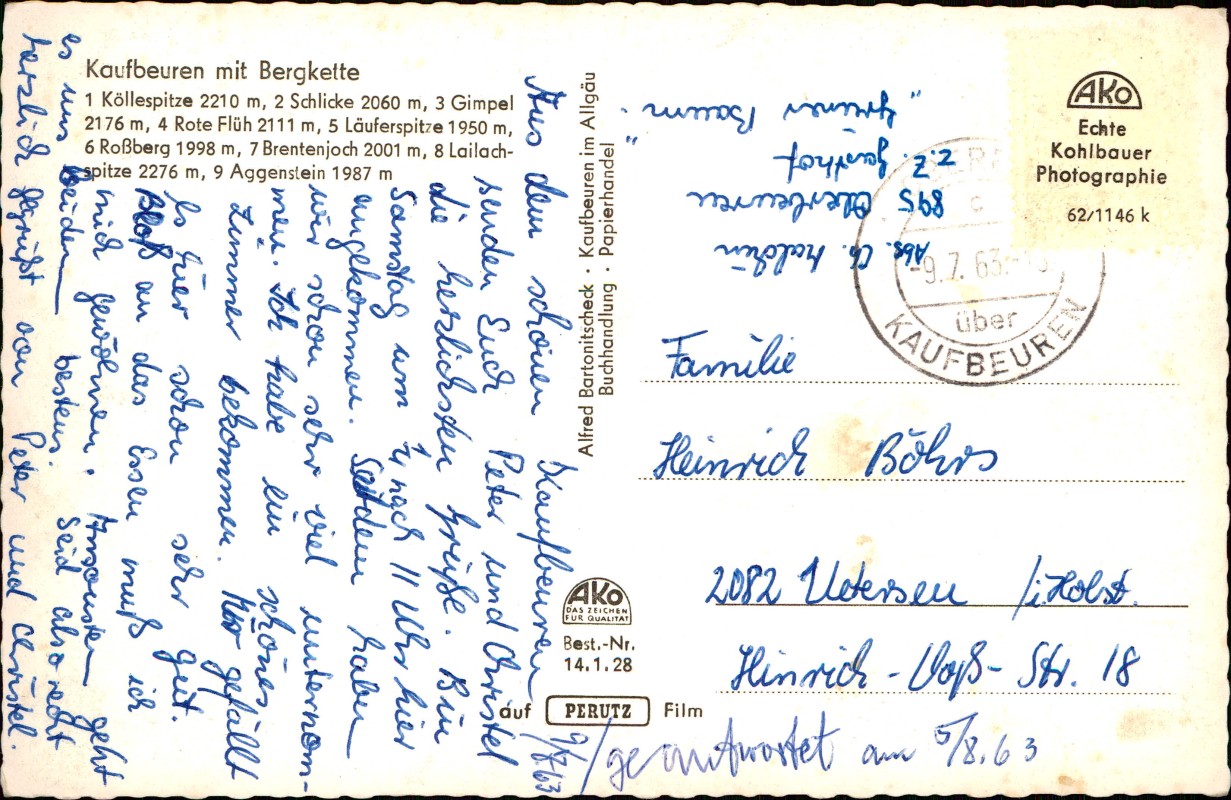 Kaufbeuren mit Bergkette
1 Köllespitze 2210 m, 2 Schlicke 2060 m, 3 Gimpel
2176 m, 4 Rote Flüh 2111 m, 5 Läuferspitze 1950 m,
6 Roßberg 1998 m, 7 Brentenjoch 2001 m, 8 Lailach-
spitze 2276 m, 9 Aggenstein 1987 m
Aus dem schönen Kaufbeuren 9/7/63
senden Euch Peter und Christel
die herzlichsten Grüße. Bin
Samstag um ½ nach 11 Uhr hier
angekommen. Seitdem haben
wir schon sehr viel unternom-
men. Ich habe ein schönes
Zimmer bekommen. Mir gefällt
es hier schon sehr gut.
Bloß an das Essen muß ich
mich gewöhnen. Ansonsten geht
es uns beiden bestens. Seid also recht
herzlich gegrüßt von Peter und Christel.
Alfred Bartonitscheck · Kaufbeuren im Allgäu
Buchhandlung · Papierhandel
AKO
DAS ZEICHEN
FÜR QUALITÄT
Best.-Nr.
14.1.28
auf PERUTZ Film
AKO
Echte
Kohlbauer
Photographie
62/1146 k
Abs. Ch.
895 Oberbeuren
z.Z. Gasthof
"Grüner Baum"
c
-9.7.63
über
KAUFBEUREN
Familie
Heinrich Böhrs
2082 Uetersen /i. Holst.
Hinrich-Voß-Str. 18
geantwortet am 5/8.63